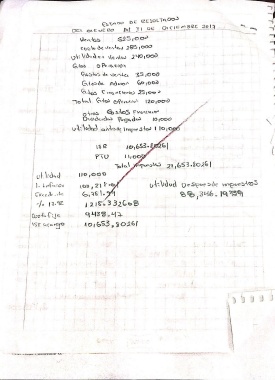 ESTADO DE RESULTADOS
DEL 01 ENERO AL 31 DE DICIEMBRE 2019
Ventas 525,000
Costo de ventas 285,000
utilidad en ventas 240,000
Gtos operación
Gastos de ventas 35,000
Gtos de Admon 60,000
Gtos Financieros 25,000
Total gtos operación 120,000
otros Gastos
Pagados 10,000
utilidad antes de impuestos 110,000
ISR 10,653.80261
PTU 11,000
Total impuestos 21,653.80261
utilidad 110,000
L. Inferior
Excedente
% 1215.332608
Cuota fija 9438.47
ISR a cargo 10,653.80261
utilidad Despues de impuestos
88,346.19739